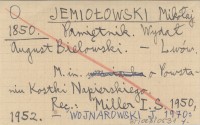 JEMIOŁOWSKI Mikołaj
1850. Pamiętnik. Wydał
August Bielowski. — Lwów.
M. in. o Powsta-
niu Kostki Napierskiego.
Rec.: Miller I.S. 1950,
1952. — WOJNAROWSKI J. 1970